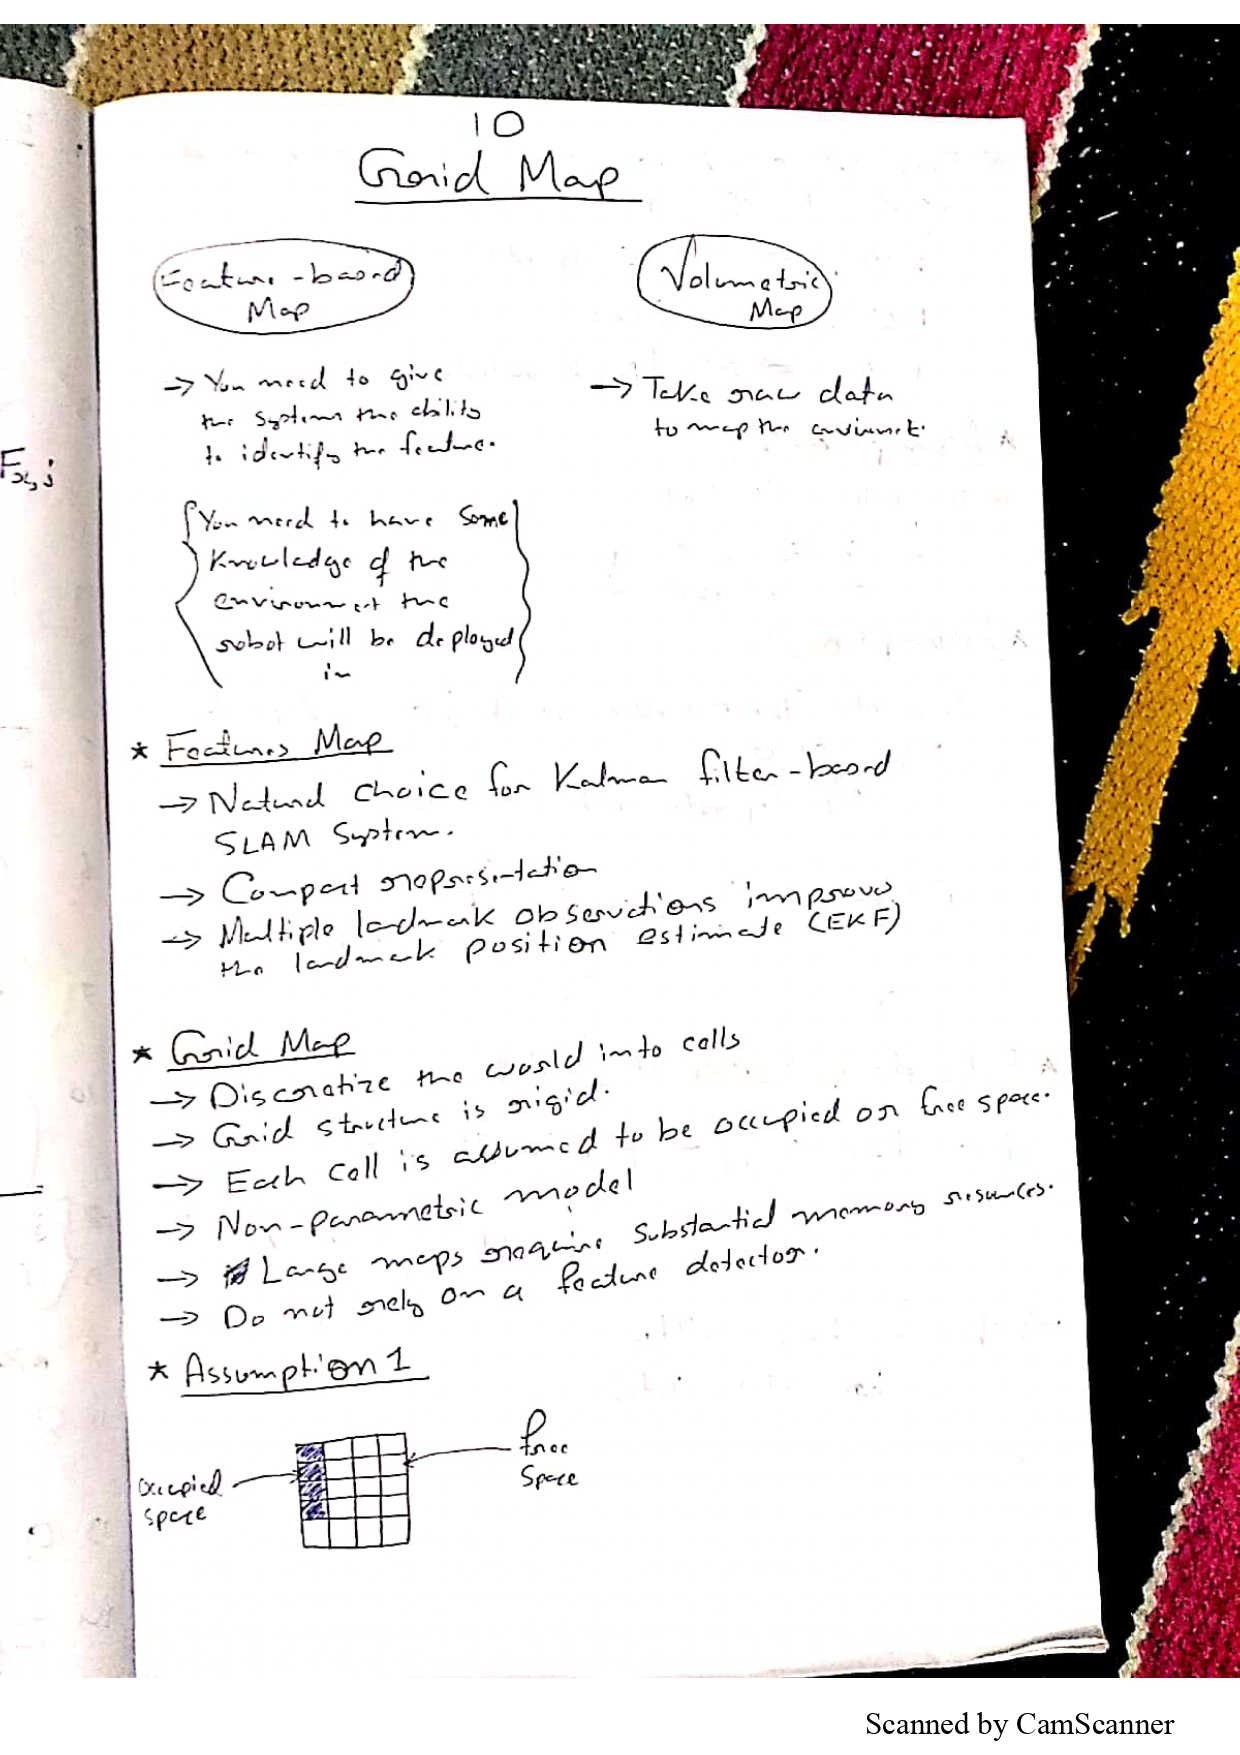 10
Grid Map
Feature-based
Map
Volumetric
Map
→ You need to give
the system the ability
to identify the feature.
→ Take raw data
to map the
You need to have some
Knowledge of the
environment the
robot will be deployed
in
Fx,j
* Features Map
→ Natural choice for Kalman filter-based
SLAM System.
→ Compact representation
→ Multiple landmark observations improve
the landmark position estimate (EKF)
* Grid Map
→ Discretize the world into cells
→ Grid structure is rigid.
→ Each cell is assumed to be occupied or free space.
→ Non-parametric model
→ Large maps require substantial memory resources.
→ Do not rely on a feature detector.
* Assumption 1
occupied
space
free
space
Scanned by CamScanner